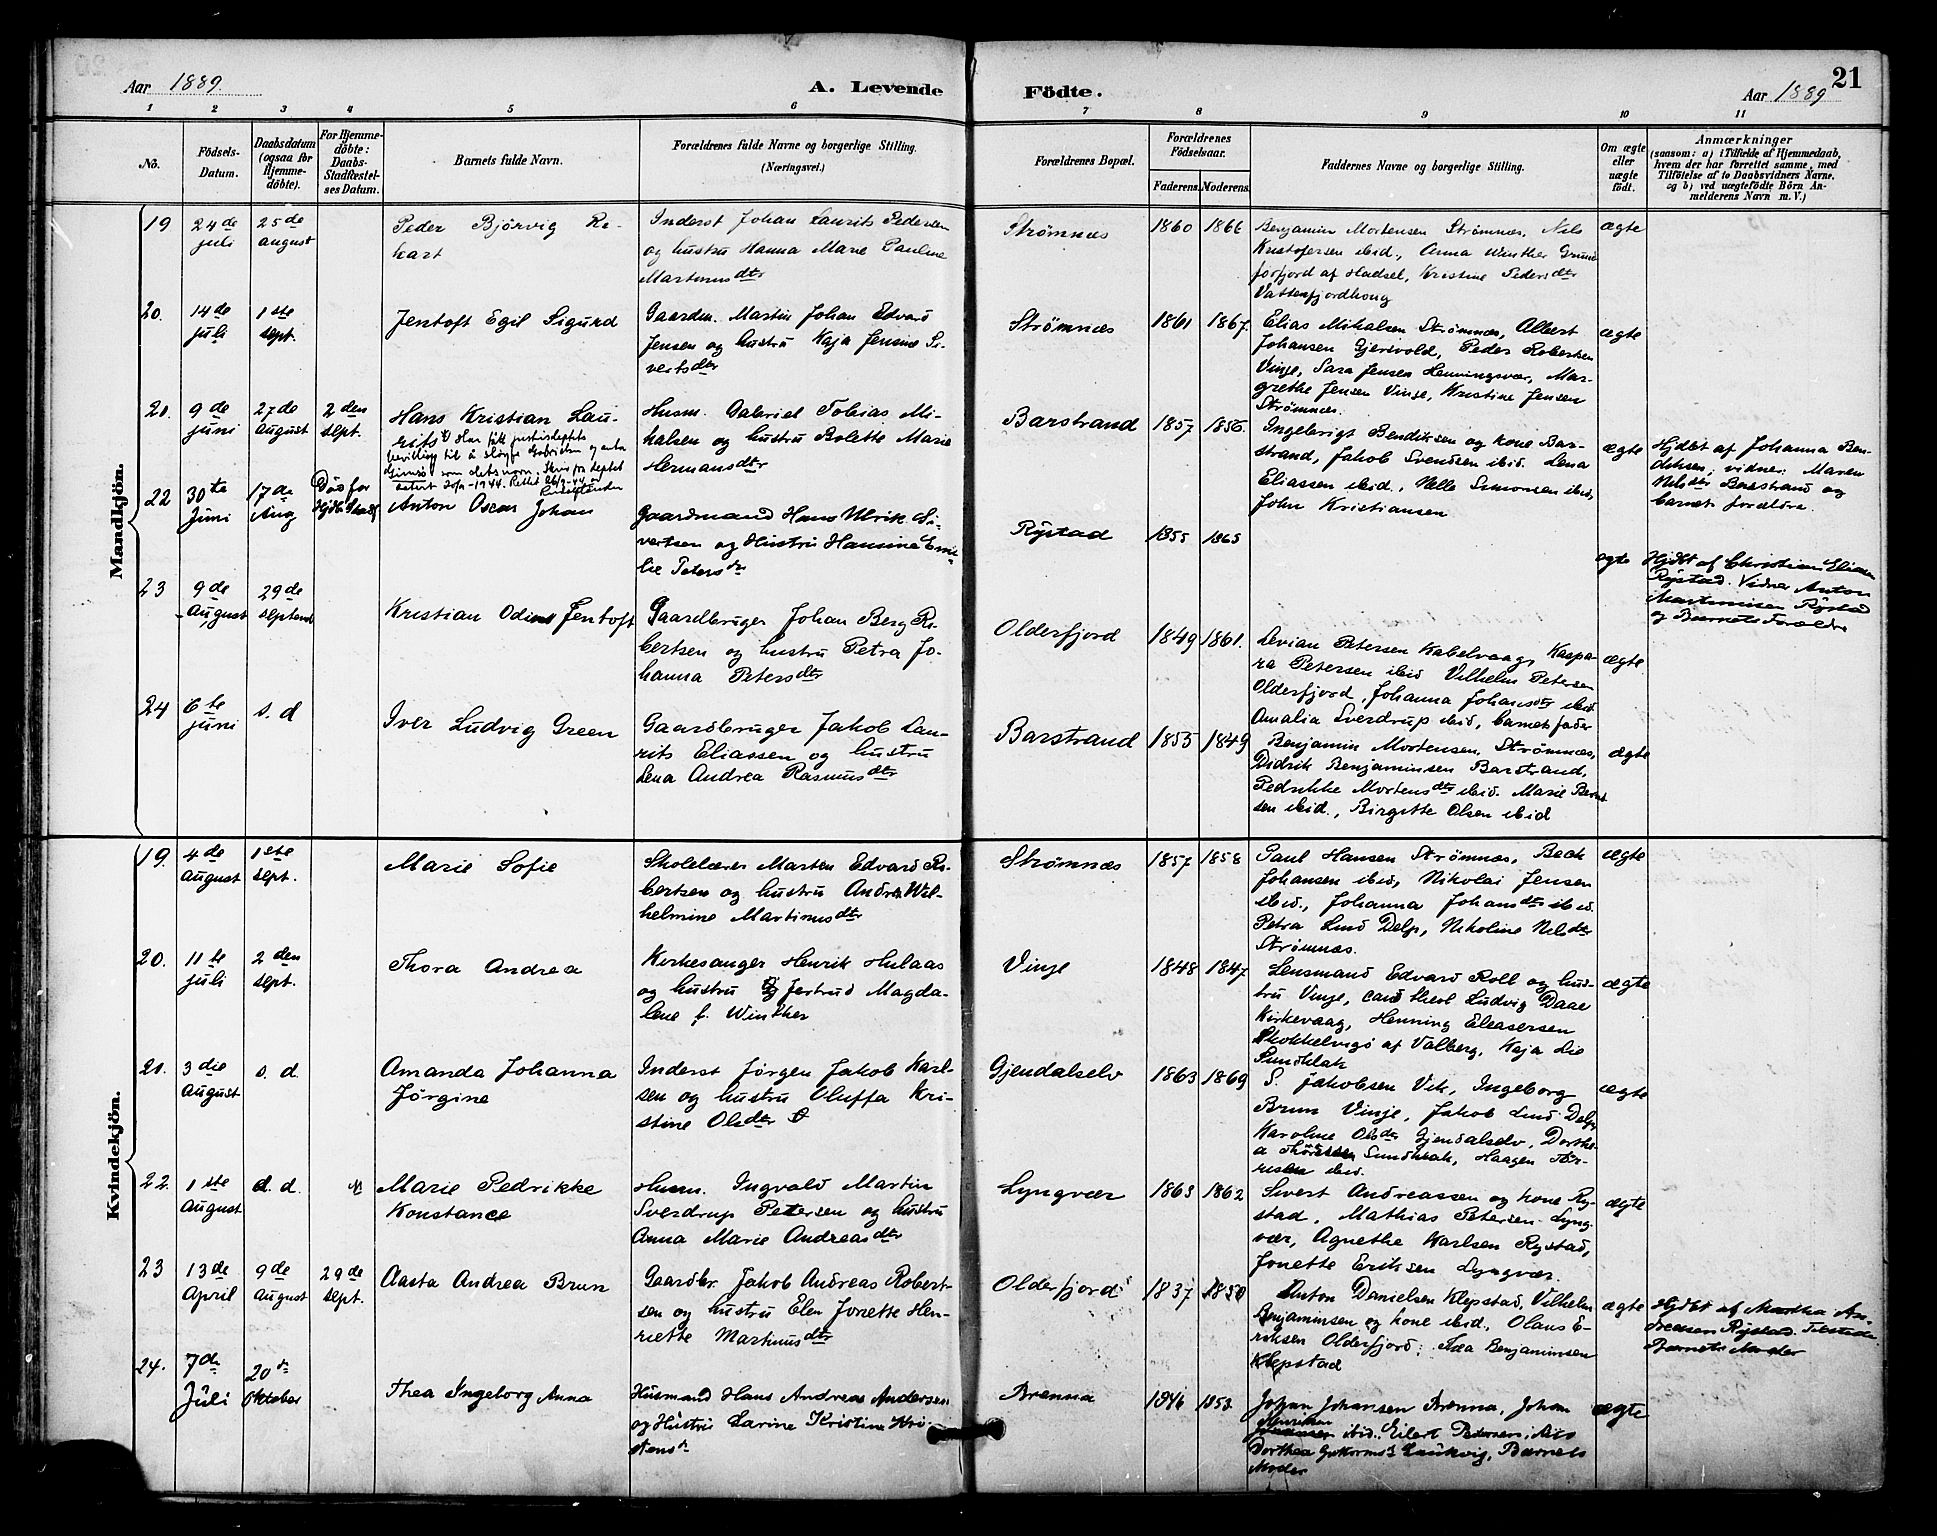 Aar 1889.
A. Levende
Födte.
Aar 1889
21
1 2 3 4 5 6 7 8 9 10 11
No.
Födsels-
Datum.
Daabsdatum
(ogsaa for
Hjemme-
döbte).
For Hjemme-
döbte:
Daabs-
Stadfæstel-
ses Datum.
Barnets fulde Navn.
Forældrenes fulde Navne og borgerlige Stilling.
(Næringsvei.)
Forældrenes Bopæl.
Forældrenes
Födselsaar.
Faderens. Moderens.
Faddernes Navne og borgerlige Stilling.
Om ægte
eller
uægte
födt.
Anmærkninger
(saasom: a) i Tilfælde af Hjemmedaab,
hvem der har forrettet samme, med
Tilföielse af to Daabsvidners Navne,
og b) ved uægtefödte Börn An-
melderens Navn m. V.)
Mandkjön.
19
24de
juli
25de
august
Peder Bjørvig Ri-
kart
Inderst Johan Laurits Pedersen
og hustru Hanna Marie Pauline
Martinusdtr
Strømnæs
1860 1866
Benjamin Mortensen Strømnæs, Nels
Kristofersen ibid., Anna Winther Grund
forfjord af Hadsel, Kristine Pedersdtr
Vatterfjordhoug
ægte
20.
14de
juli
1ste
sept.
Jentoft Egil Sigurd
Gaardm. Martin Johan Edvard
Jensen og hustru Kaja Jensine Si-
vertsdtr
Strømnæs
1861 1867
Elias Mikalsen Strømnæs, Albert
Johansen Gjersvold, Peder Robertsen
Vinje, Sara Jensen Henningsvær, Mar-
grethe Jensen Vinje, Kristine Jensen
Strømnæs.
ægte
21.
9de
juni
27de
august
2den
sept.
Hans Kristian Lau-
rits 1) Har fått justisdeptets
bevilling til å sløyfe Gabrielsen og anta
Gimsø som slektsnavn. Skriv fra deptet
datert 20/9-1944. Rettet 26/9-44
Husm. Gabriel Tobias Mi-
kalsen og hustru Bolette Marie
Hermansdtr
Barstrand
1857 1856
Ingebrigt Bendiksen og kone Bar-
strand, Jakob Svendsen ibid. Lena
Eliassen ibid., Nelle Simonsen ibid,
John Kristiansen
ægte
Hjdbt af Johanna Ben-
diksen; vidner: Maren
Nilsdtr Barstrand og
barnets forældre.
22
30te
Juni
17de
Aug
Død før
Hjdb. Stadf
Anton Oscar Johan
Gaardmand Hans Ulrik Si-
vertsen og Hustru Hansine Emi-
lie Petersdtr
Rystad
1855 1865
ægte
Hjdbt af Christian Elias
Rystad. Vidner Anton
Martinusen Rystad
og Barnets Forældre
23
9de
august
29de
septemb
Kristian Odin Jentoft
Gaardbruger Johan Berg Ro-
bertsen og hustru Petra Jo-
hanna Petersdtr
Olderfjord
1849 1861.
Levian Petersen Kabelvaag, Kaspa-
ra Petersen ibid Vilhelm Petersen
Olderfjord, Johanna Johansdtr ibid.
Amalia Sverdrup ibid, barnets fader
ægte
24
6te
juni
s. d
Iver Ludvig Green
Gaardbruger Jakob Lau-
rits Eliassen og hustru
Lena Andrea Rasmusdtr
Barstrand
1853 1849
Benjamin Mortensen, Strømnæs,
Didrik Benjaminsen Barstrand,
Pedrikke Mortensdtr ibid. Marie Bernt-
sen ibid., Birgitte Olsen ibid
ægte
Kvindekjön.
19.
4de
august
1ste
sept.
Marie Sofie
Skolelærer Marten Edvard Ro-
bertsen og hustru Andrea Wil-
helmine Martinusdtr
Strømnæs
1857 1858
Paul Hansen Strømnæs, Beck
Johansen ibid, Nikolai Jensen
ibid., Johanna Johansdtr ibid.
Petra Lind Delp, Nikoline Nilsdtr
Strømnæs.
ægte
20.
11te
juli
2den
sept.
Thora Andrea
Kirkesanger Henrik Hulaas
og hustru Gjertrud Magda-
lene f. Winther
Vinje
1848 1847
Lensmand Edvard Roll og hus-
tru Vinje, cand theol Ludvig Daae
Kirkevaag, Henning Eleasersen
Skokkelvigø af Valberg, Kaja Lie
Sundklak
ægte
21.
3die
August
s. d.
Amanda Johanna
Jörgine
Inderst Jørgen Jakob Karl-
sen og hustru Oluffa Kri-
stine Olsdtr
Gjendalselv
1863 1869
S. Jakobsen Vik, Ingeborg
Brun Vinje, Jakob Lind Delp
Karoline Olsdtr Gjendalselv, Dorthe-
a Thöresen Sundklak, Haagen Tör-
risen ibid.
ægte
22.
1ste
august
d. d.
Marie Pedrikke
Konstance
Husm. Ingvald Martin
Sverdrup Petersen og hustru
Anna Marie Andreasdtr
Lyngvær
1863 1862
Sivert Andreassen og kone Ry-
stad, Mathias Petersen Lyng-
vær, Agnethe Karlsen Rystad,
Jonette Eriksen Lyngvær.
ægte
23
13de
April
9de
august
29de
sept.
Aasta Andrea Brun
Gaardbr. Jakob Andreas Robert-
sen og hustru Elen Jonette Hen-
riette Martinusdtr
Olderfjord
1837 1850
Anton Danielsen Klepstad, Vilhelm
Benjaminsen og kone ibid. Olaus E-
riksen Olderfjord; Ida Benjaminsen
Klepstad
ægte
Hjdbt af Martha An-
dreasen Rystad. Tilstede
Barnets Moder
24.
7de
Juli
20de
Oktober
Thea Ingeborg Anna
Husmand Hans Andreas Andersen
og Hustru Larine Kristine Kri-
stensdtr
Brenna
1846 1853
Johan Johansen Brenna, Johan
Henriksen ibid. Eilert Pedersen,
Dorthea Guttormsd Laukvig, Barnets
Moder
ægte